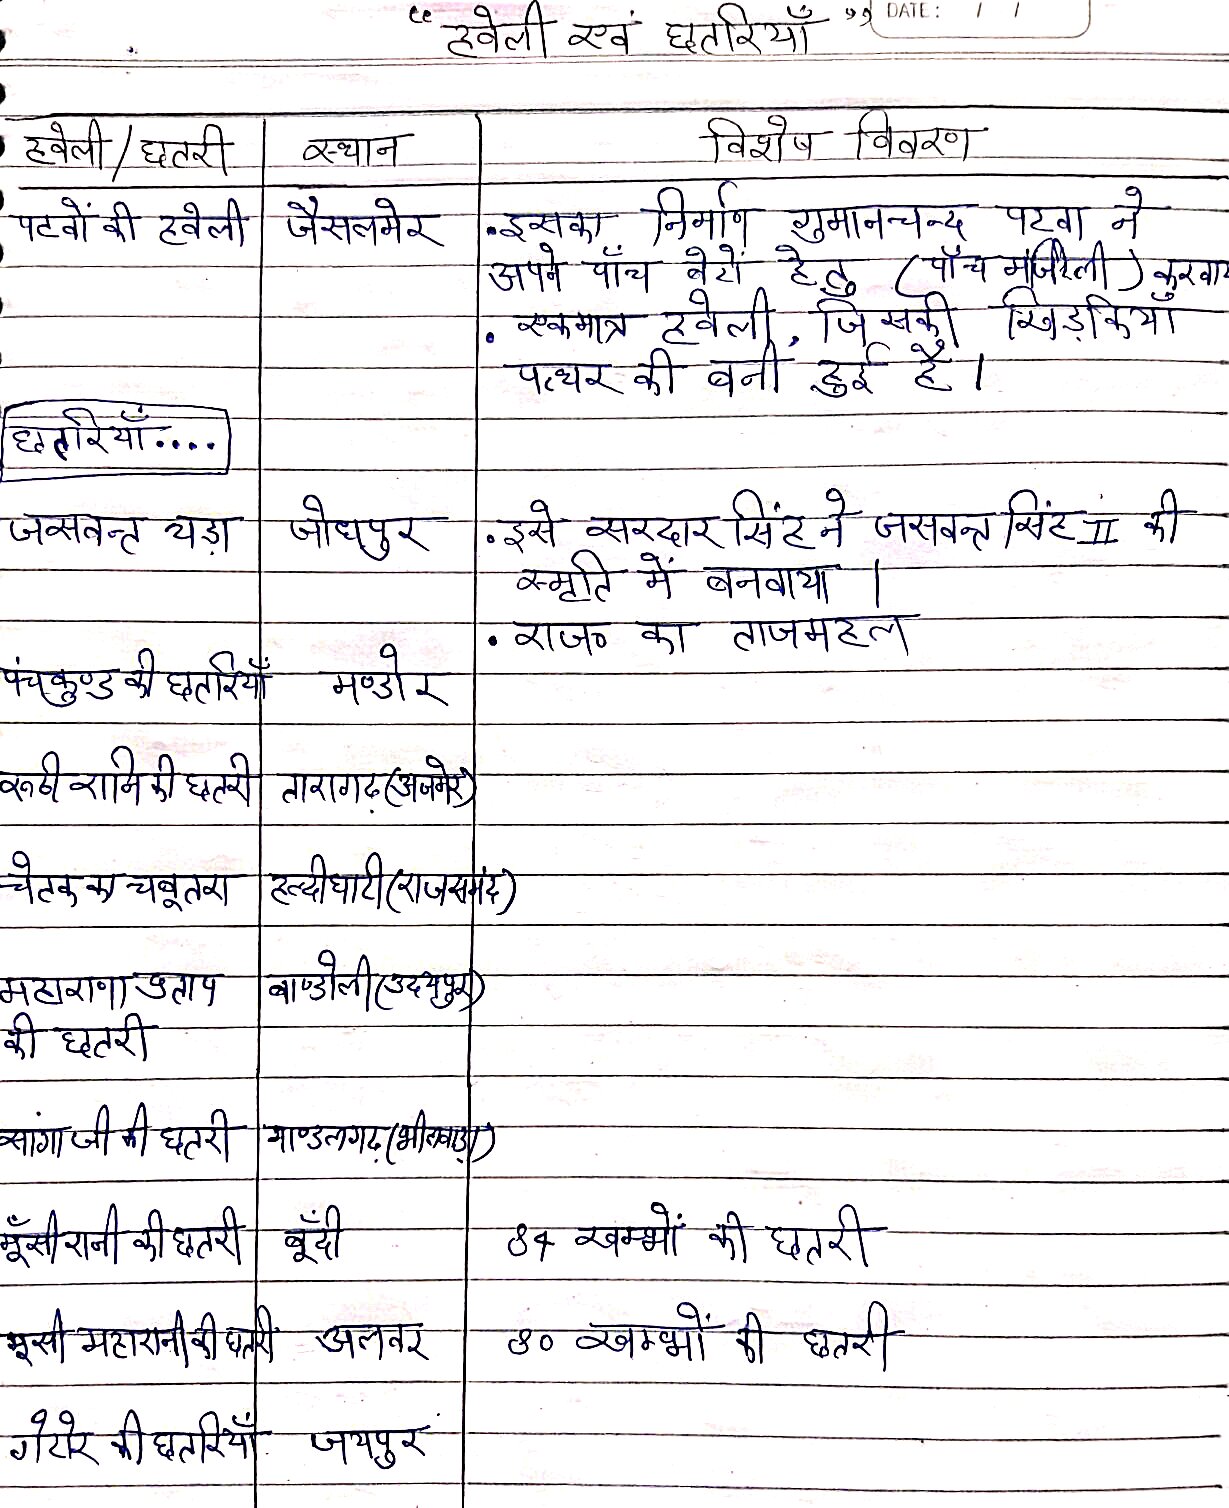 “ हवेली एवं छतरियाँ ”
DATE: / /
हवेली/छतरी स्थान विशेष विवरण
पटवों की हवेली जैसलमेर •इसका निर्माण गुमानचन्द पटवा ने
अपने पाँच बेटों हेतु (पाँच मंजिली) करवाय
• एकमात्र हवेली, जिसकी खिड़कियाँ
पत्थर की बनी हुई है।
छतरियाँ....
जसवन्त थड़ा जोधपुर •इसे सरदार सिंह ने जसवन्त सिंह II की
स्मृति में बनवाया |
• राज० का ताजमहल
पंचकुण्ड की छतरियाँ मण्डोर
रूठी रानि की छतरी तारागढ़(अजमेर)
चेतक का चबूतरा हल्दीघाटी(राजसमंद)
महाराणा प्रताप बाण्डोली(उदयपुर)
की छतरी
सांगा जी की छतरी माण्डलगढ़(भीलवाड़ा)
मूँसी रानी की छतरी बूँदी 84 खम्भों की छतरी
मूसी महारानी की छतरी अलवर 80 खम्भों की छतरी
गेटोर की छतरियाँ जयपुर